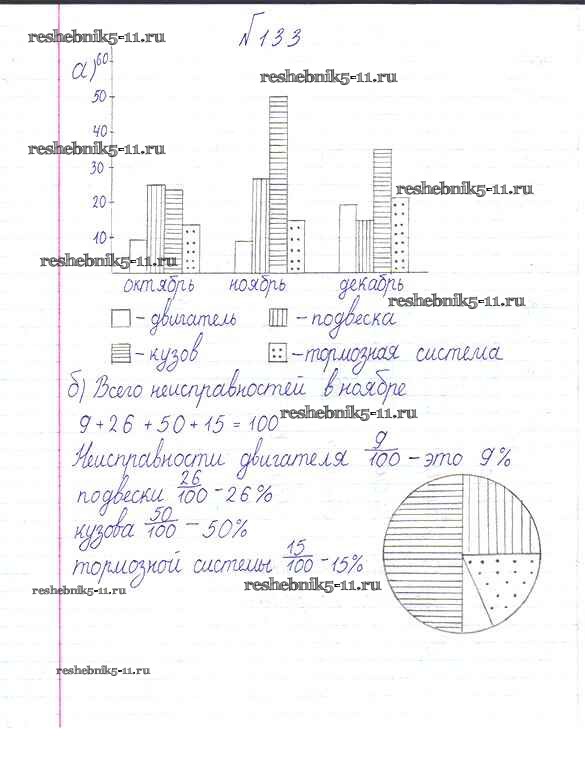 reshebnik5-11.ru
№133
а)
reshebnik5-11.ru
60
50
40
reshebnik5-11.ru
30
reshebnik5-11.ru
20
10
reshebnik5-11.ru
октябрь ноябрь декабрь
reshebnik5-11.ru
- двигатель - подвеска
- кузов - тормозная система
б) Всего неисправностей в ноябре
reshebnik5-11.ru
9 + 26 + 50 + 15 = 100
Неисправности двигателя 9/100 - это 9%
подвески 26/100 - 26%
кузова 50/100 - 50%
тормозной системы 15/100 - 15%
reshebnik5-11.ru
reshebnik5-11.ru
reshebnik5-11.ru